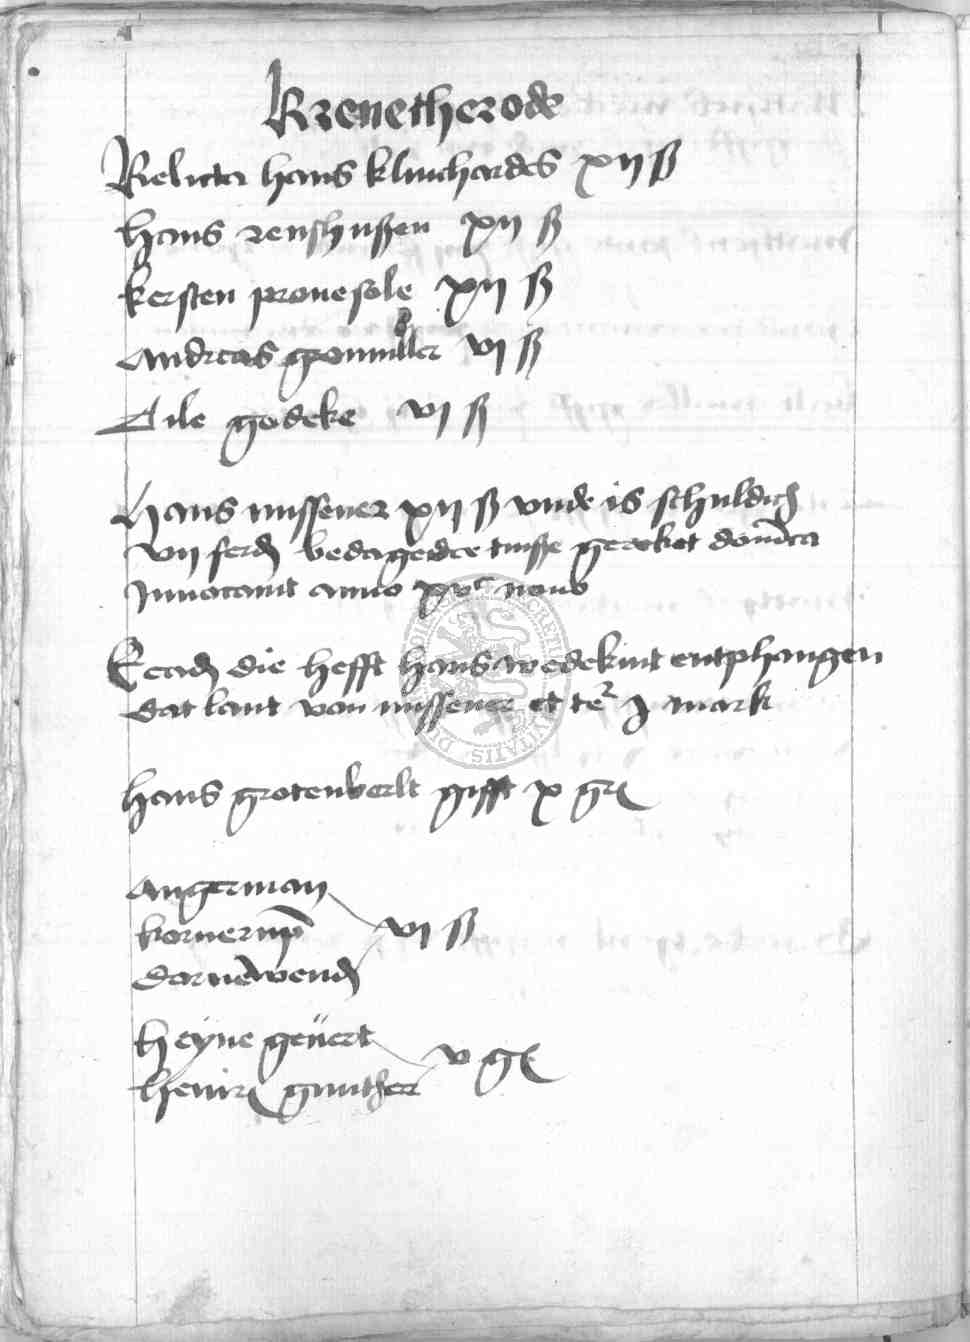 Krenetherode
Relicta hans klinchardes xij ß
hans renshußen xij ß
kersten prouesole xij ß
Andreas gronmller vj ß
Tile godeke vj ß
Hans missener xij ß vnde is schuldich
vij ferd bedagedce tinße gereket domica
Inuocauit anno xvc nono
Eead die hefft hans wedekint entphangen
dat lant von missener et te j mark
hans grotenverlt gifft x gr
Angerman
kornerup vj ß
dornewend
Heyne geuert
v g
henir gunther